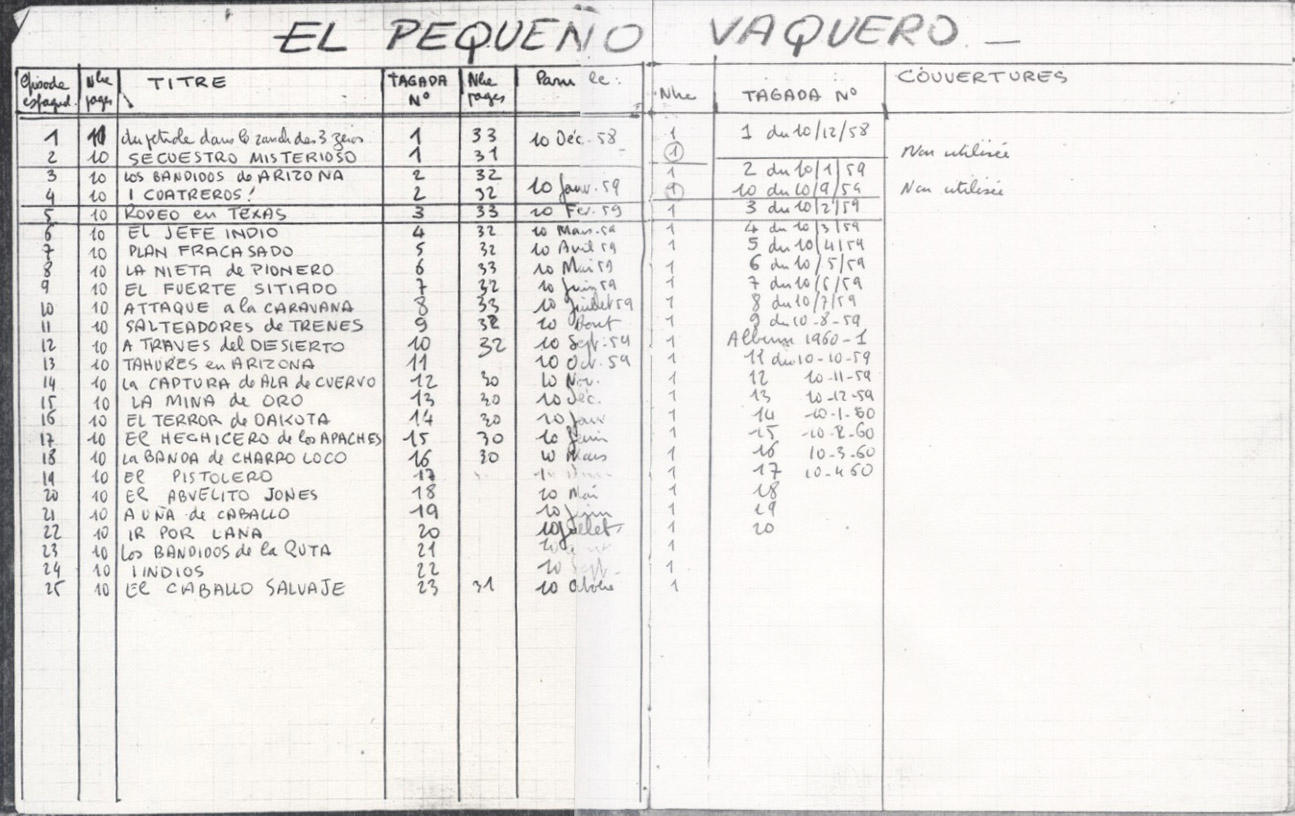 EL PEQUEÑO VAQUERO
Episode espagnol Nbre pages TITRE TAGADA N° Nbre pages Paru le: Nbre TAGADA N° COUVERTURES
1 10 du pétrole dans le ranch des 3 zéros 1 33 10 Déc. 58 1 1 du 10/12/58
2 10 SECUESTRO MISTERIOSO 1 31 1 Non utilisée
3 10 LOS BANDIDOS de ARIZONA 2 32 1 2 du 10/1/59
4 10 I CUATREROS! 2 32 10 Janv. 59 1 10 du 10/9/59 Non utilisée
5 10 RODEO en TEXAS 3 33 10 Fev. 59 1 3 du 10/2/59
6 10 EL JEFE INDIO 4 32 10 Mars. 59 1 4 du 10/3/59
7 10 PLAN FRACASADO 5 32 10 Avril 59 1 5 du 10/4/59
8 10 LA NIETA de PIONERO 6 33 10 Mai 59 1 6 du 10/5/59
9 10 EL FUERTE SITIADO 7 32 10 Juin 59 1 7 du 10/6/59
10 10 ATTAQUE a la CARAVANA 8 33 10 Juillet 59 1 8 du 10/7/59
11 10 SALTEADORES de TRENES 9 32 10 Aout 1 9 du 10-8-59
12 10 A TRAVES del DESIERTO 10 32 10 Sept. 59 1 Album 1960-1
13 10 TAHURES en ARIZONA 11 10 Oct. 59 1 11 du 10-10-59
14 10 LA CAPTURA de ALA de CUERVO 12 30 10 Nov. 1 12 10-11-59
15 10 LA MINA de ORO 13 30 10 Déc. 1 13 10-12-59
16 10 EL TERROR de DAKOTA 14 30 10 Janv 1 14 10-1-60
17 10 EL HECHICERO de los APACHES 15 30 10 1 15 10-2-60
18 10 LA BANDA de CHARRO LOCO 16 30 10 Mars 1 16 10-3-60
19 10 EL PISTOLERO 17 10 1 17 10-4-60
20 10 EL ABVELITO JONES 18 10 Mai 1 18
21 10 A UÑA de CABALLO 19 10 Juin 1 19
22 10 IR POR LANA 20 10 Juillet 1 20
23 10 LOS BANDIDOS de la RUTA 21 10 1
24 10 I INDIOS 22 10 Sept. 1
25 10 EL CABALLO SALVAJE 23 31 10 Octobre 1